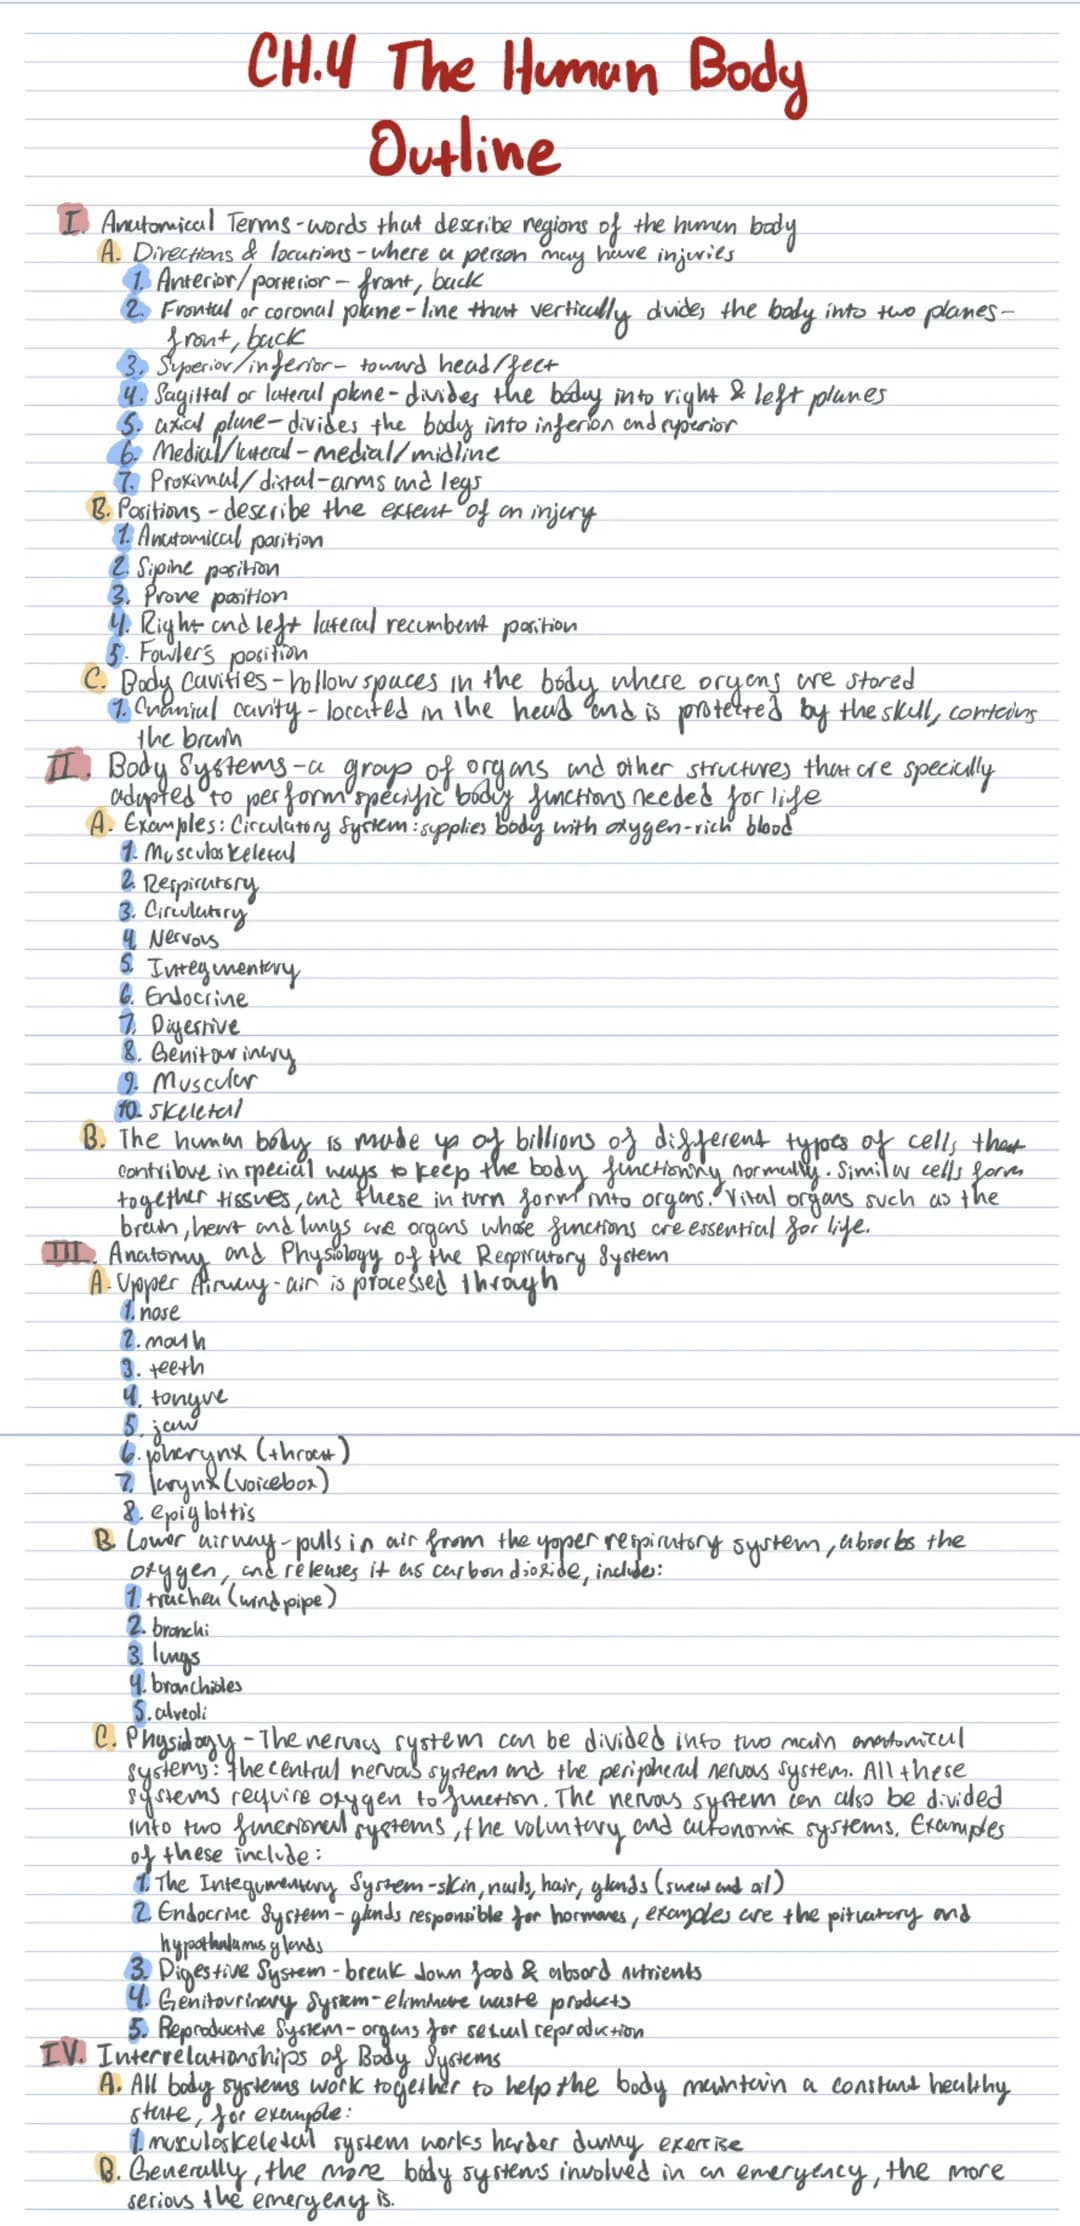 CH.4 The Human Body
Outline
I. Anatomical Terms - words that describe regions of the human body
A. Directions & locations - where a person may have injuries
1. Anterior/posterior - front, back
2. Frontal or coronal plane - line that vertically divides the body into two planes -
front, back
3. Superior/inferior - toward head/feet
4. Sagittal or lateral plane - divides the body into right & left planes
5. axial plane - divides the body into inferion and superior
6. Medial/lateral - medial/midline
7. Proximal/distal - arms and legs
B. Positions - describe the extent of an injury
1. Anatomical position
2. Sipine position
3. Prove position
4. Right and left lateral recumbent position
5. Fowler's position
C. Body Cavities - hollow spaces in the body where organs are stored
1. Cranial cavity - located in the head and is protected by the skull, contains
the brain
II. Body Systems - a group of organs and other structures that are specially
adapted to perform specific body functions needed for life
A. Examples: Circulatory System: supplies body with oxygen-rich blood
1. Musculoskeletal
2. Respiratory
3. Circulatory
4. Nervous
5. Integumentary
6. Endocrine
7. Digestive
8. Genitourinary
9. Muscular
10. Skeletal
B. The human body is made up of billions of different types of cells that
contribue in special ways to keep the body functioning normally. Similar cells form
together tissues, and these in turn form into organs. Vital organs such as the
brain, heart and lungs are organs whose functions are essential for life.
III. Anatomy and Physiology of the Respiratory System
A. Upper Airway - air is processed through
1. nose
2. mouth
3. teeth
4. tongue
5. jaw
6. pharynx (throat)
7. larynx (voicebox)
8. epiglottis
B. Lower airway - pulls in air from the upper respiratory system, absorbs the
oxygen, and releases it as carbon dioxide, includes:
1. trachea (windpipe)
2. bronchi
3. lungs
4. bronchioles
5. alveoli
C. Physiology - The nervous system can be divided into two main anatomical
systems: the central nervous system and the peripheral nervous system. All these
systems require oxygen to function. The nervous system can also be divided
into two functional systems, the voluntary and autonomic systems. Examples
of these include:
1. The Integumentary System - skin, nails, hair, glands (sweat and oil)
2. Endocrine System - glands responsible for hormones, examples are the pituatary and
hypothalamus glands
3. Digestive System - break down food & absord nutrients
4. Genitourinary System - eliminate waste products
5. Reproductive System - organs for sexual reproduction
IV. Interrelationships of Body Systems
A. All body systems work together to help the body maintain a constant healthy
state, for example:
1. musculoskeletal system works harder during exercise
B. Generally, the more body systems involved in an emergency, the more
serious the emergency is.